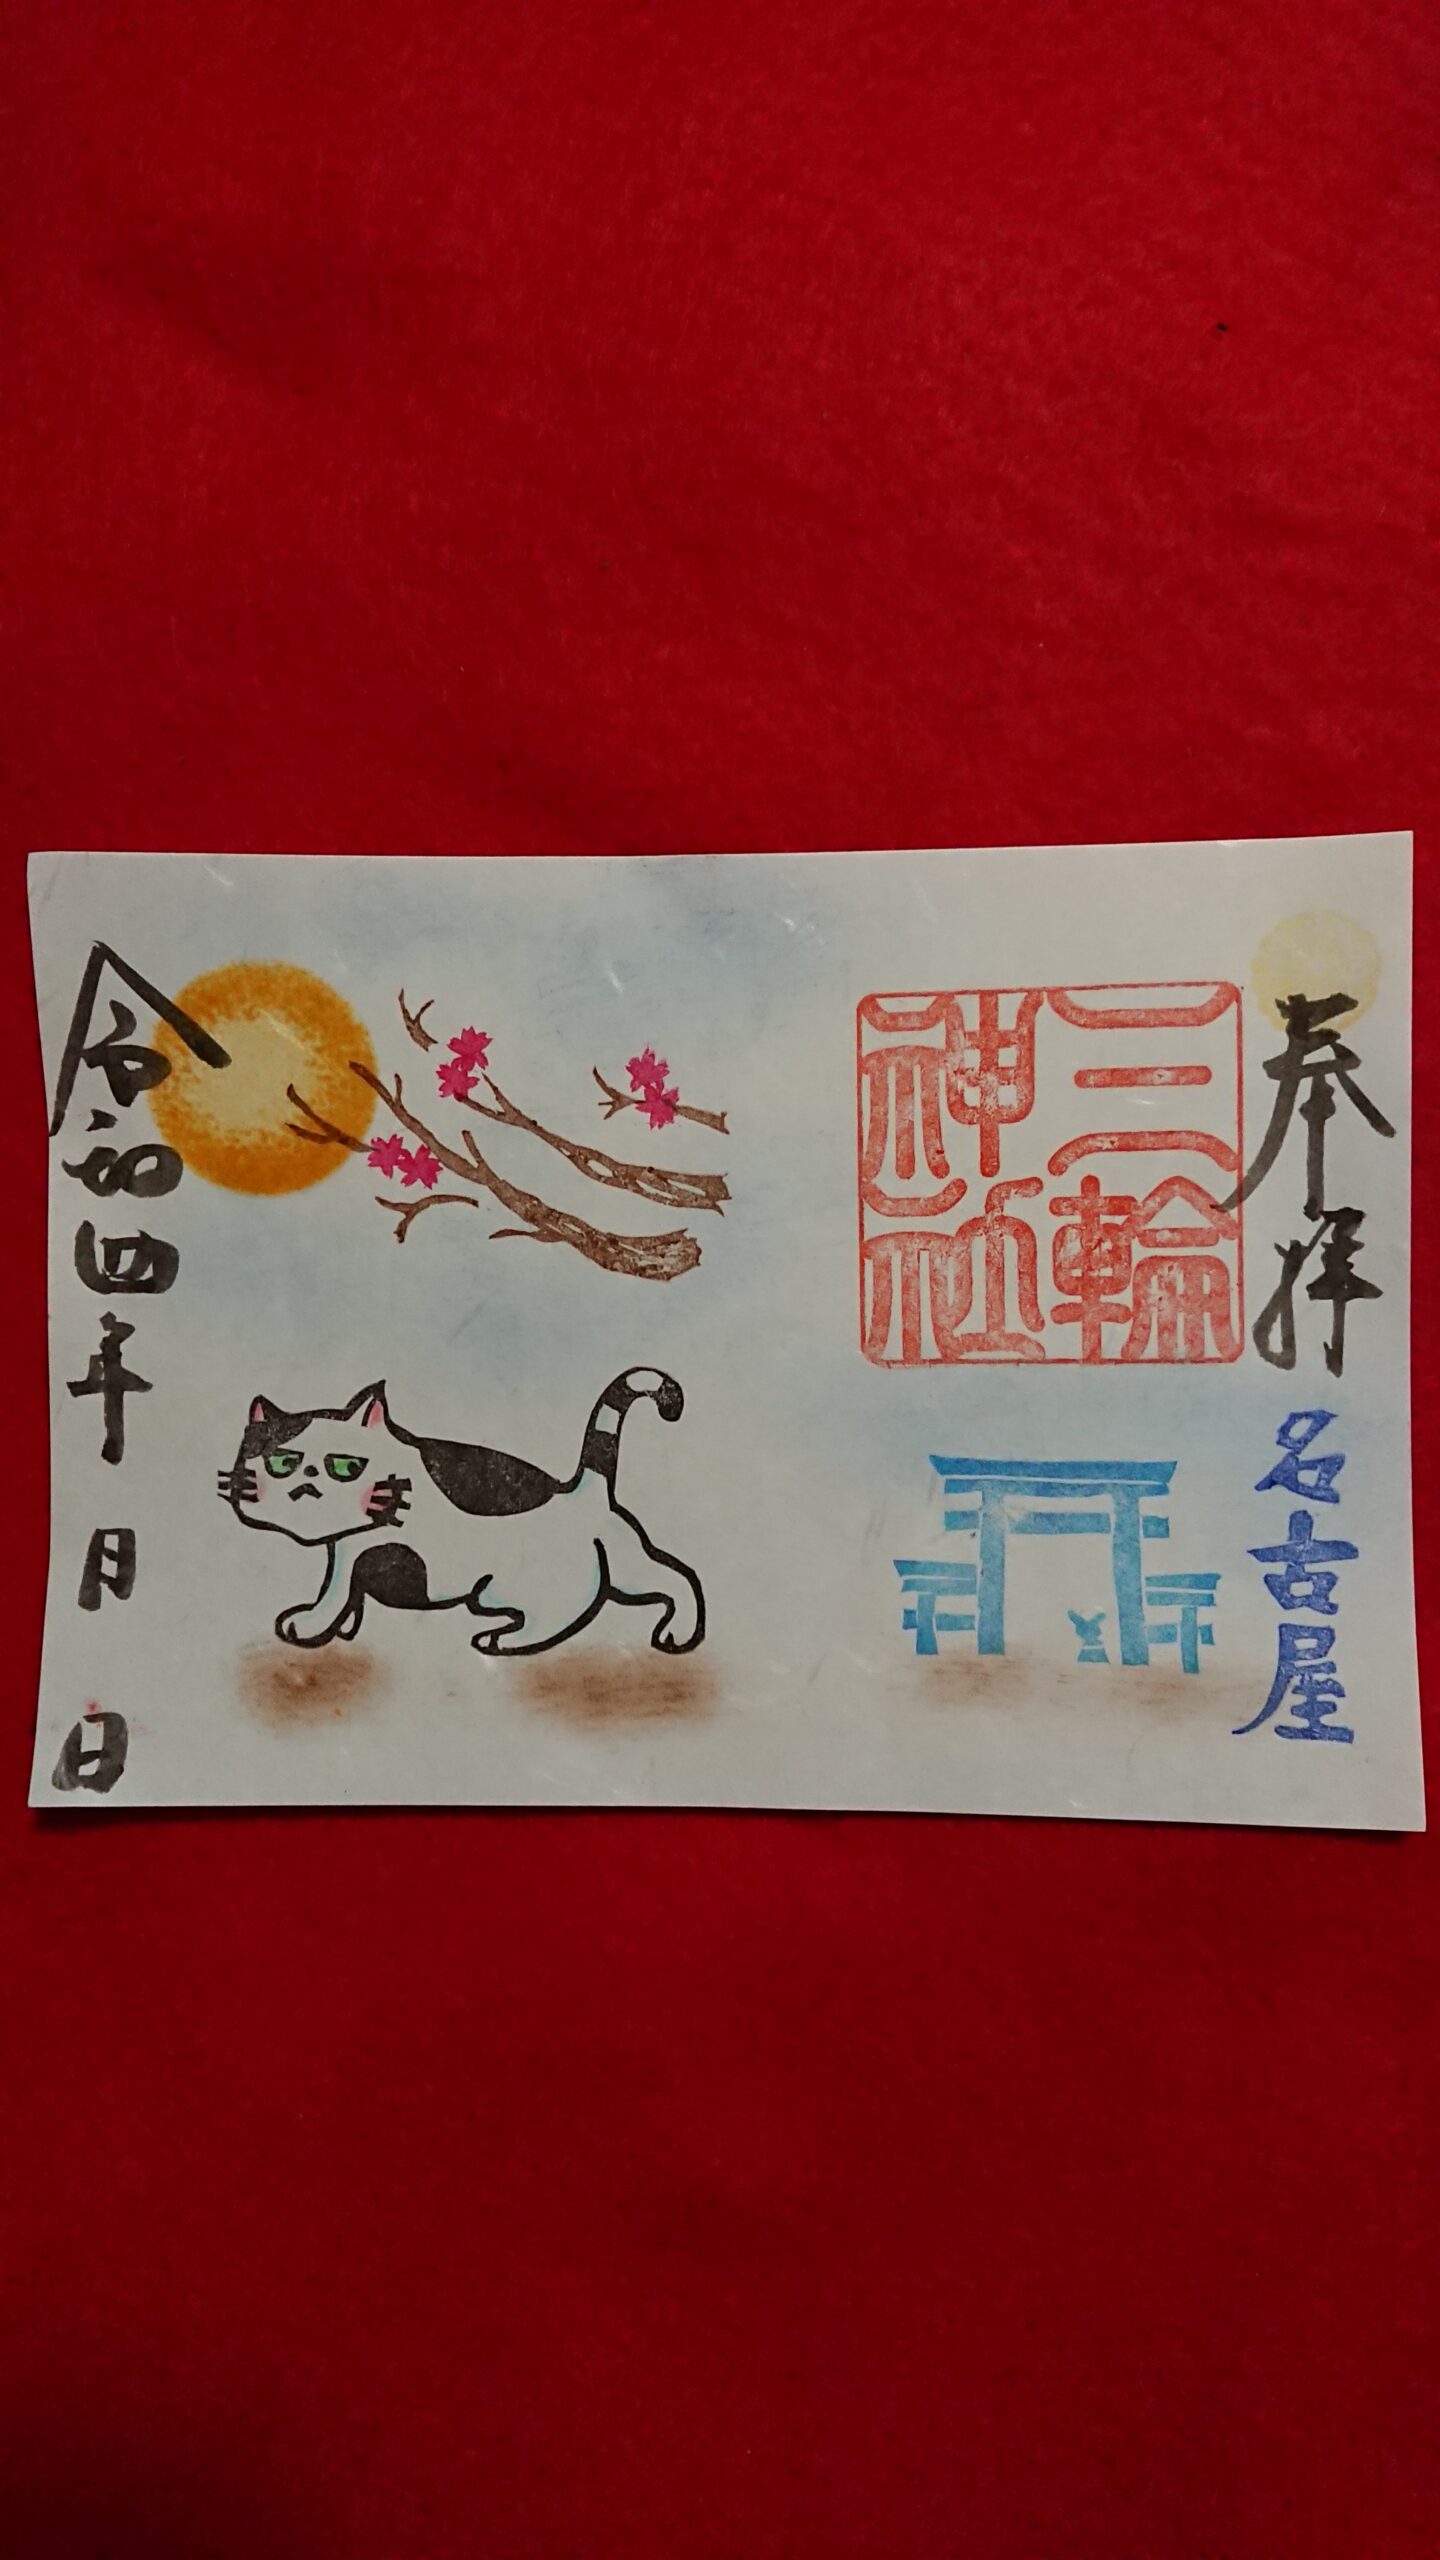 奉拝
名古屋
三輪
神社
令和四年 月 日